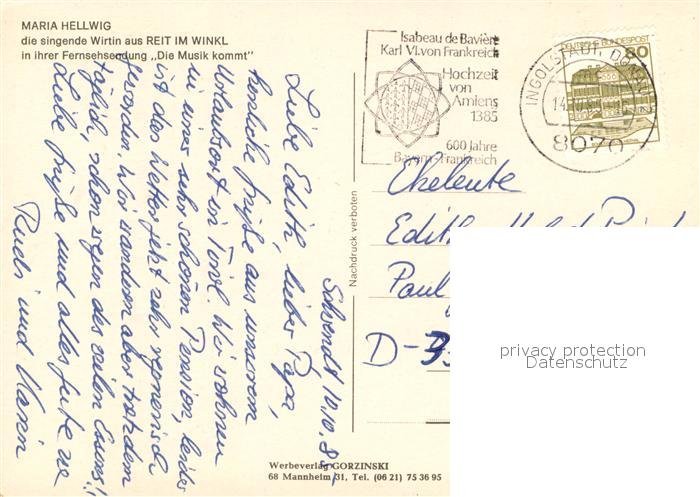 MARIA HELLWIG
die singende Wirtin aus REIT IM WINKL
in ihrer Fernsehsendung „Die Musik kommt"
Isabeau de Bavière
Karl VI. von Frankreich
Hochzeit
von
Amiens
1385
600 Jahre
Bayern-Frankreich
INGOLSTADT, DONAU
8070
DEUTSCHE BUNDESPOST
80
Schwendt 10.10.85
Liebe Edith, lieber Papa,
herzliche Grüße aus unserem
Urlaubsort in Tirol. Wir wohnen
in einer sehr schönen Pension, leider
ist das Wetter jetzt sehr regnerisch
geworden. Wir wandern aber trotzdem
täglich, schon wegen des vielen Essens!!
Liebe Grüße und alles Gute
Rudi und Karin
Nachdruck verboten
Eheleute
Edith
Paul
D-
privacy protection
Datenschutz
Werbeverlag GORZINSKI
68 Mannheim 31, Tel. (06 21) 75 36 95